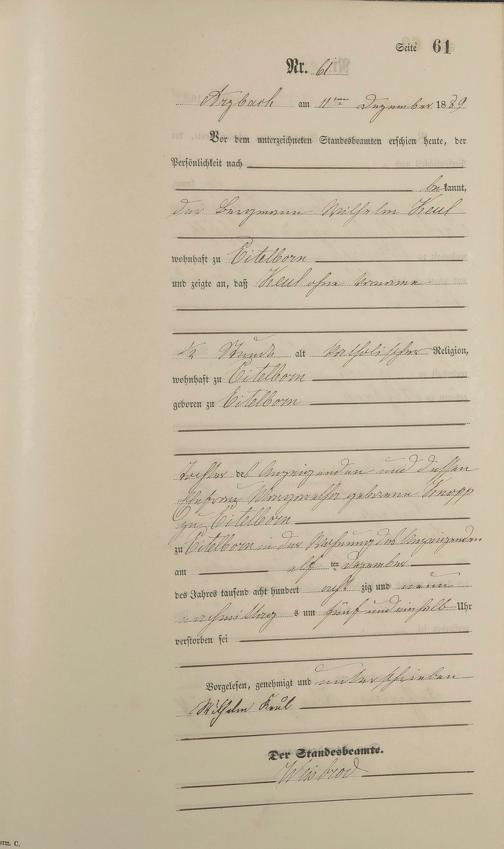 Seite 61
Nr. 61
Arzbach am 11ten Dezember 1889
Vor dem unterzeichneten Standesbeamten erschien heute, der
Persönlichkeit nach
bekannt,
der Bergmann Wilhelm Keul
wohnhaft zu Eitelborn
und zeigte an, daß Keul ohne Vorname
1/2 Stunde alt katholischer Religion,
wohnhaft zu Eitelborn
geboren zu Eitelborn
Tochter des Anzeigenden und dessen
Ehefrau Margaretha geborene Knopp
zu Eitelborn
zu Eitelborn in der Wohnung des Anzeigenden
am elf ten Dezember
des Jahres tausend acht hundert acht zig und neun
nachmittags um fünf und einhalb Uhr
verstorben sei
Vorgelesen, genehmigt und unterschrieben
Wilhelm Keul
Der Standesbeamte.
Weisbrod
rm. C.